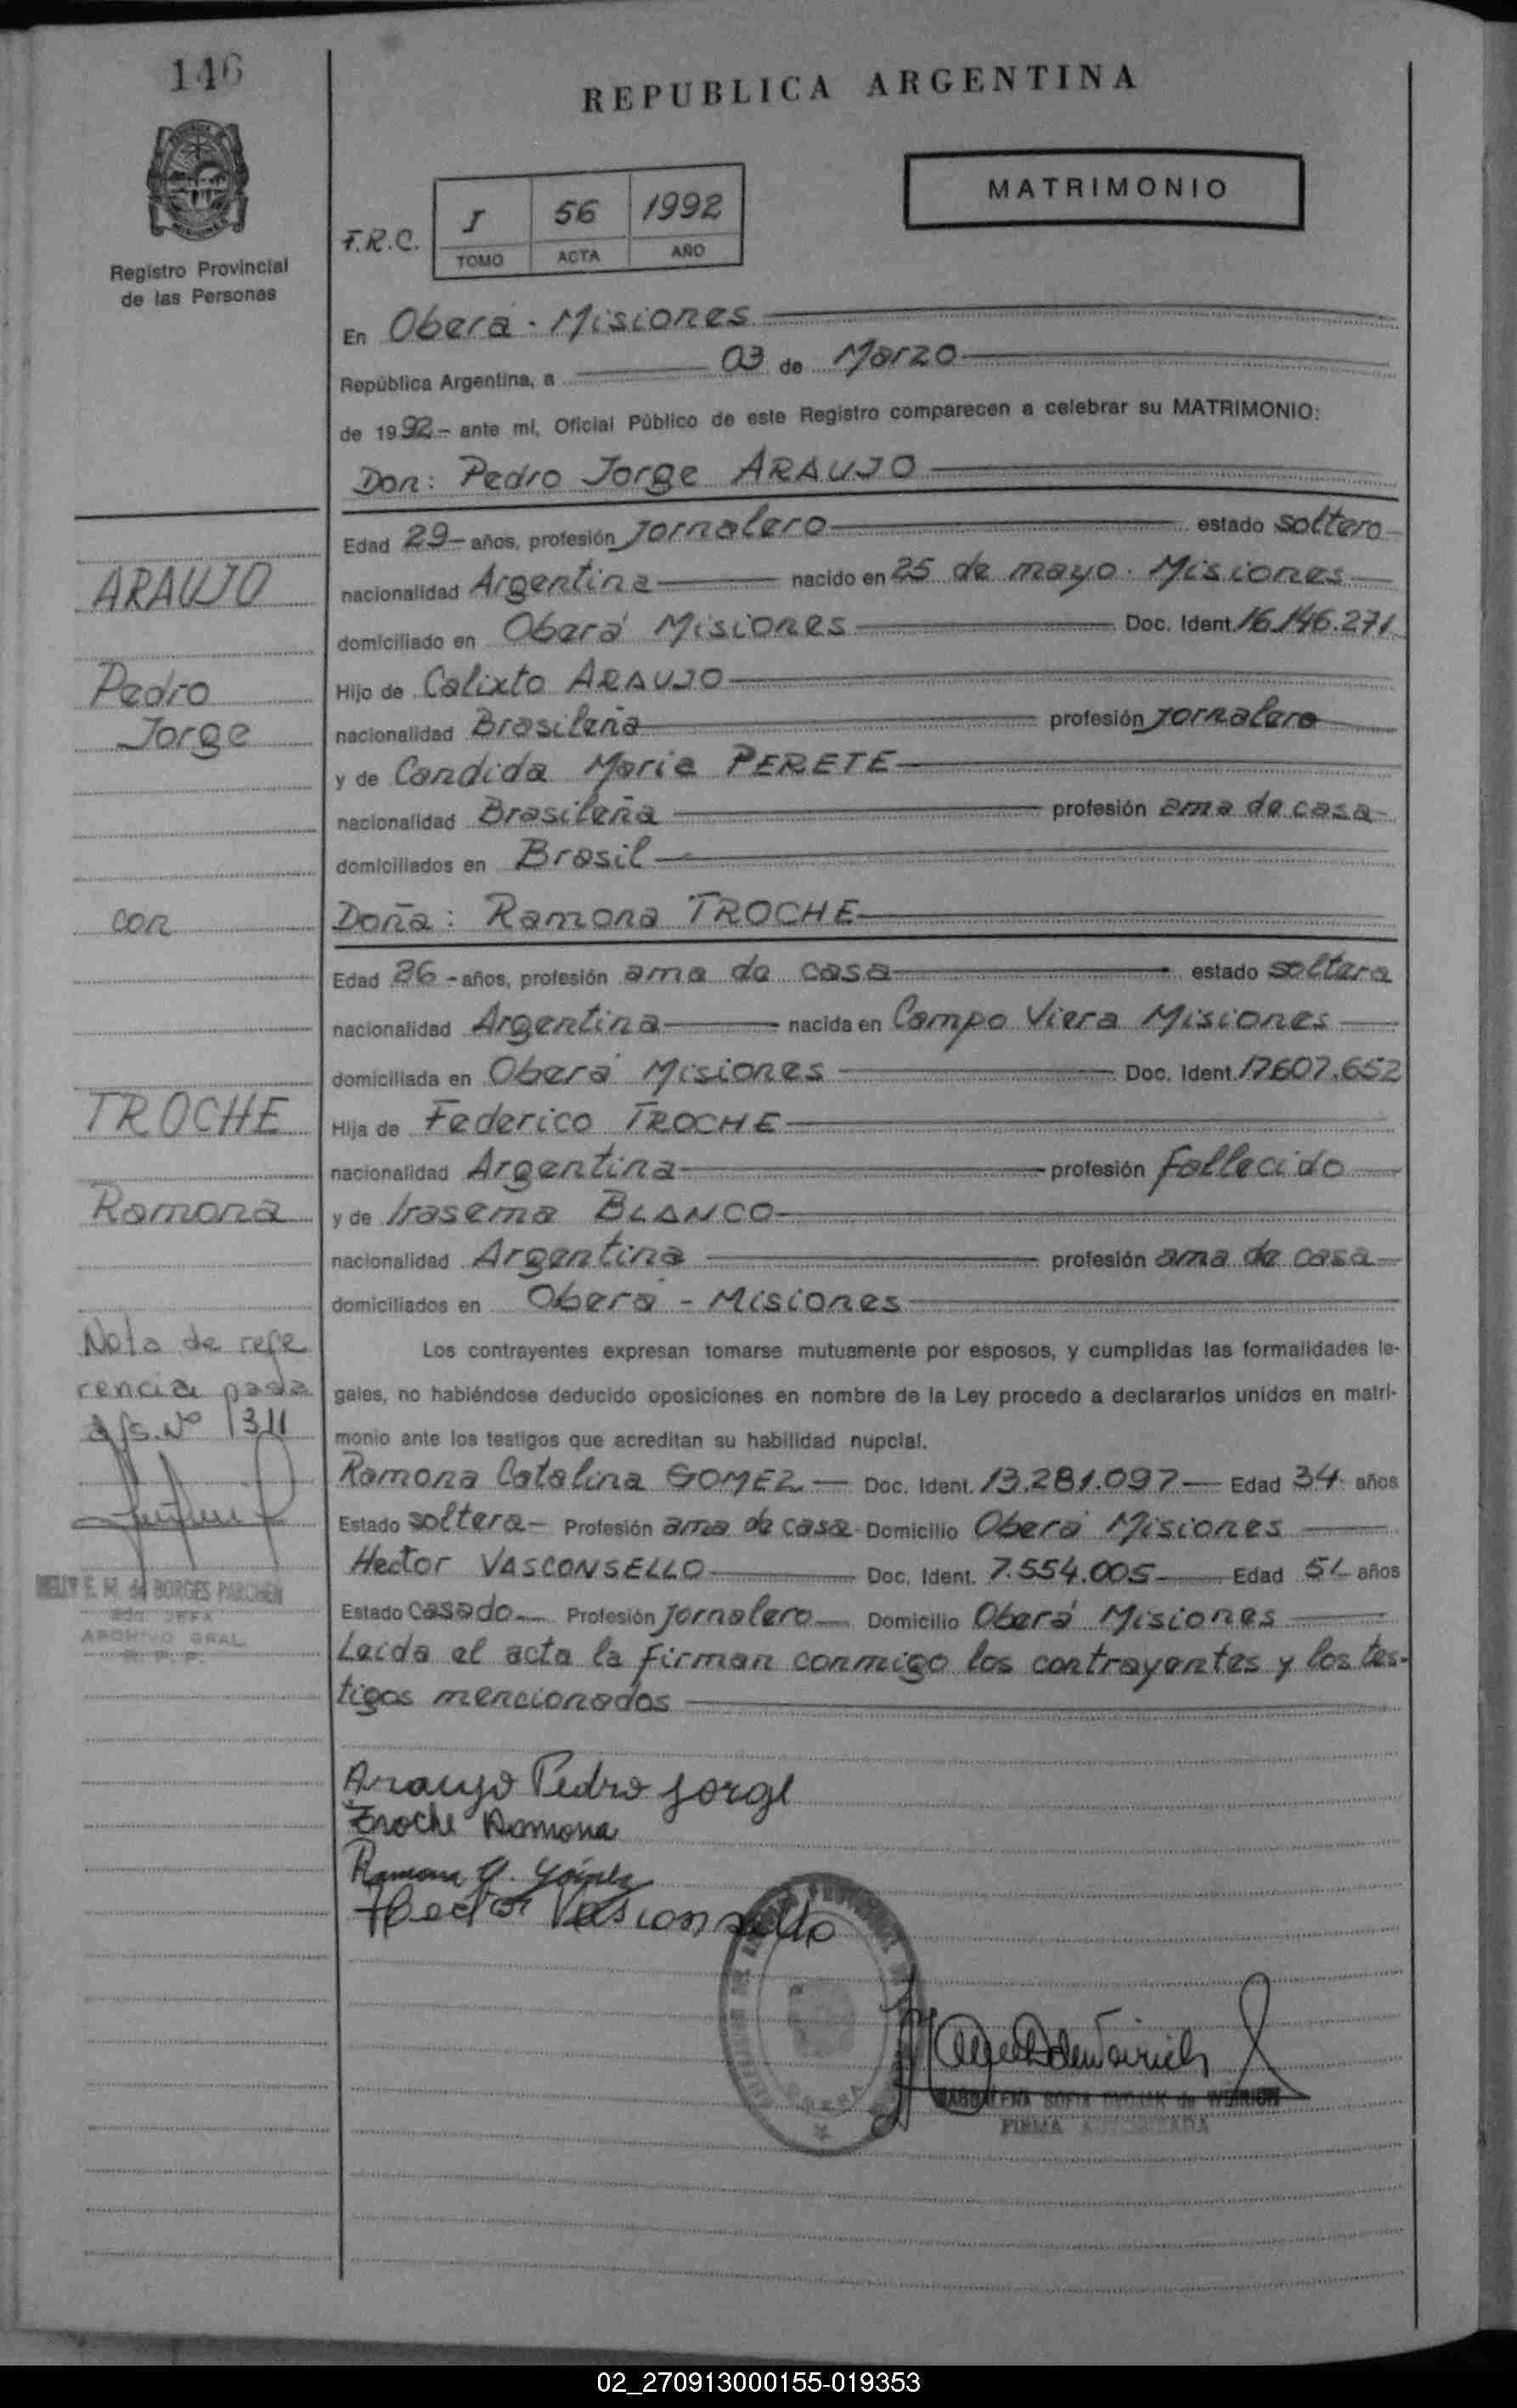 146
REPUBLICA ARGENTINA
MATRIMONIO
Registro Provincial
de las Personas
F.R.C.
I 56 1992
TOMO ACTA AÑO
En Oberá - Misiones
República Argentina, a 03 de Marzo
de 1992.- ante mi, Oficial Público de este Registro comparecen a celebrar su MATRIMONIO:
Don: Pedro Jorge ARAUJO
Edad 29- años, profesión Jornalero estado soltero
nacionalidad Argentina nacido en 25 de mayo. Misiones
domiciliado en Oberá Misiones Doc. Ident. 16.146.271
Hijo de Calixto ARAUJO
nacionalidad Brasileña profesión Jornalero
y de Candida Maria PERETE
nacionalidad Brasileña profesión ama de casa
domiciliados en Brasil
Doña: Ramona TROCHE
Edad años, profesión ama de casa estado soltera
nacionalidad Argentina nacida en Campo Viera Misiones
domiciliada en Oberá Misiones Doc. Ident. 17607.652
Hija de Federico TROCHE
nacionalidad Argentina profesión fallecido
y de Irasema BLANCO
nacionalidad Argentina profesión ama de casa
domiciliados en Oberá - Misiones
Los contrayentes expresan tomarse mutuamente por esposos, y cumplidas las formalidades le-
gales, no habiéndose deducido oposiciones en nombre de la Ley procedo a declararlos unidos en matri-
monio ante los testigos que acreditan su habilidad nupcial.
Ramona Catalina GOMEZ Doc. Ident. 13.281.097 Edad 34 años
Estado soltera Profesión ama de casa Domicilio Oberá Misiones
Hector VASCONSELLO Doc. Ident. 7.554.005 Edad 51 años
Estado Casado Profesión Jornalero Domicilio Oberá Misiones
Leida el acta la firman conmigo los contrayentes y los tes-
tigos mencionados
ARAUJO
Pedro
Jorge
con
TROCHE
Ramona
Nota de refe
rencia pasa
a fs. Nº 1311
NELLY E. M. de BORGES PARCHEN
ARCHIVO GRAL.
Araujo Pedro Jorge
Troche Ramona
Hector Vasconsello
OBERA
MAGDALENA SOFIA de WEIRICH
FIRMA AUTORIZADA
02_270913000155-019353